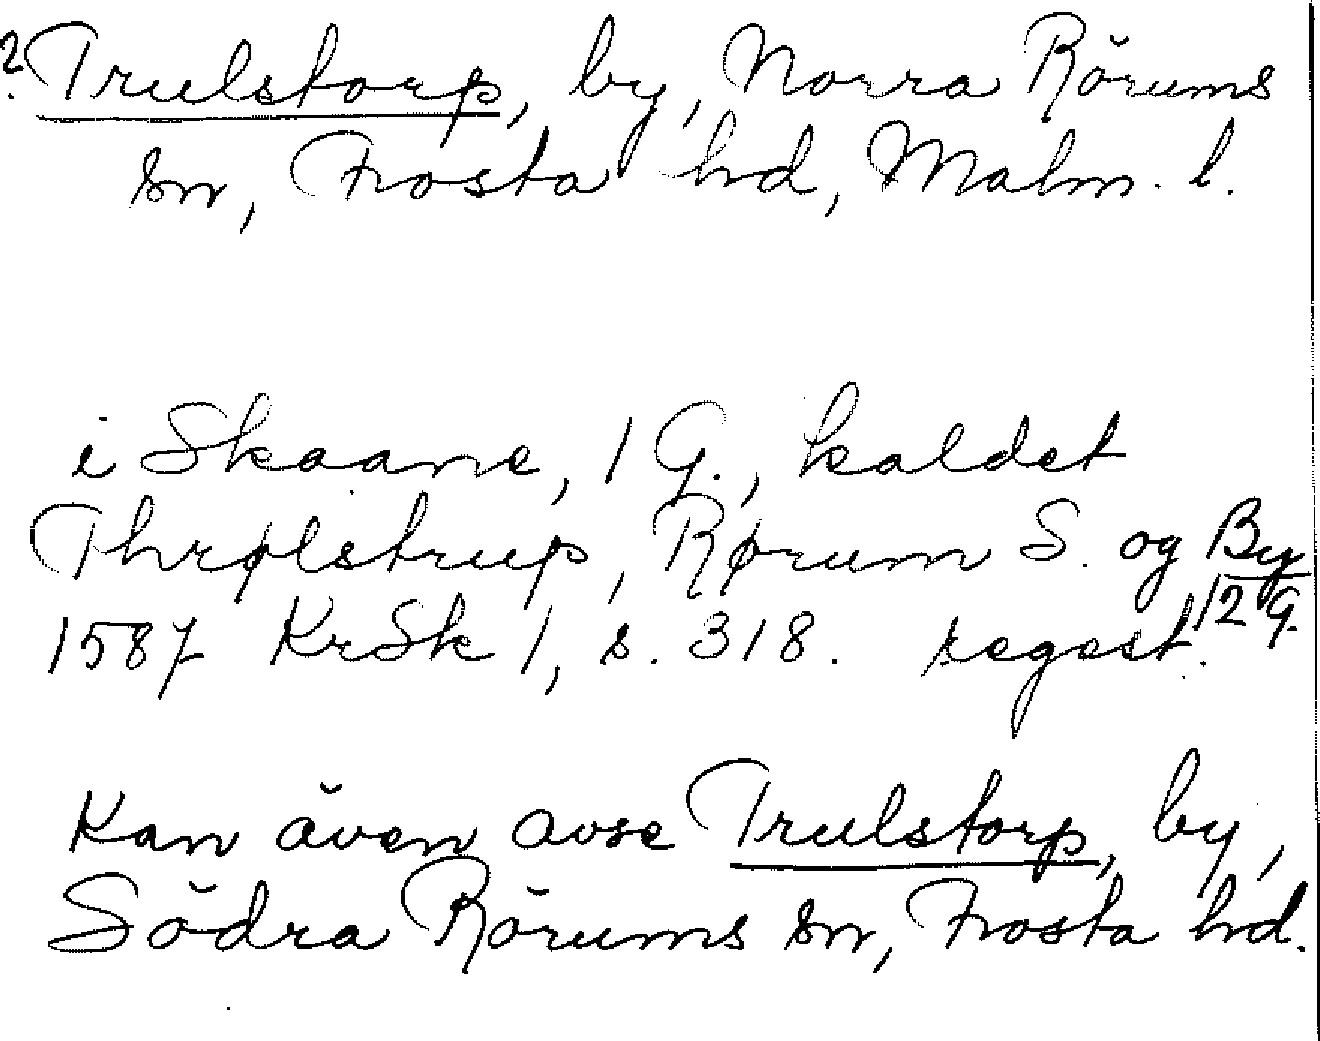 ? Trulstorp, by, Norra Rörums
sn, Frosta hd, Malm. l.
i Skaane, 1 G., kaldet
Thrølstrup, Rørum S. og By
12 G.
1587 KrSk 1, s. 318. regest.
Kan även avse Trulstorp, by,
Södra Rörums sn, Frosta hd.